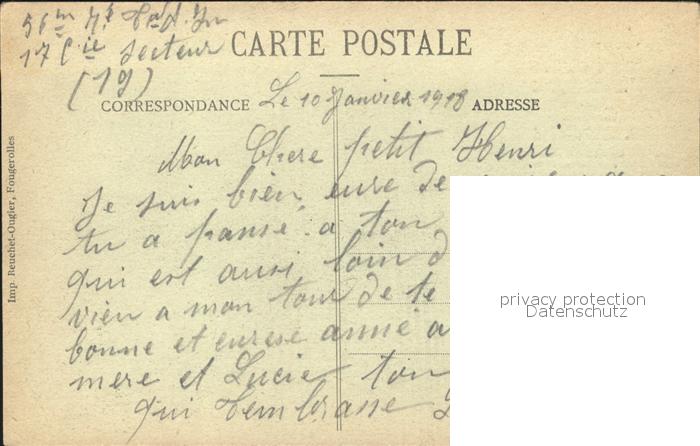 56m
17 Cie Secteur
(19)
CARTE POSTALE
CORRESPONDANCE
Le 10 Janvier 1918
ADRESSE
Mon Chere petit Henri
Je suis bien eure de
tu a panse a ton
qui est ausi loin d
vien a mon tour de te
bonne et eurese anné a
mere et Lucie ton
qui tembrasse
Imp. Reuchet-Ougier, Fougerolles
privacy protection
Datenschutz